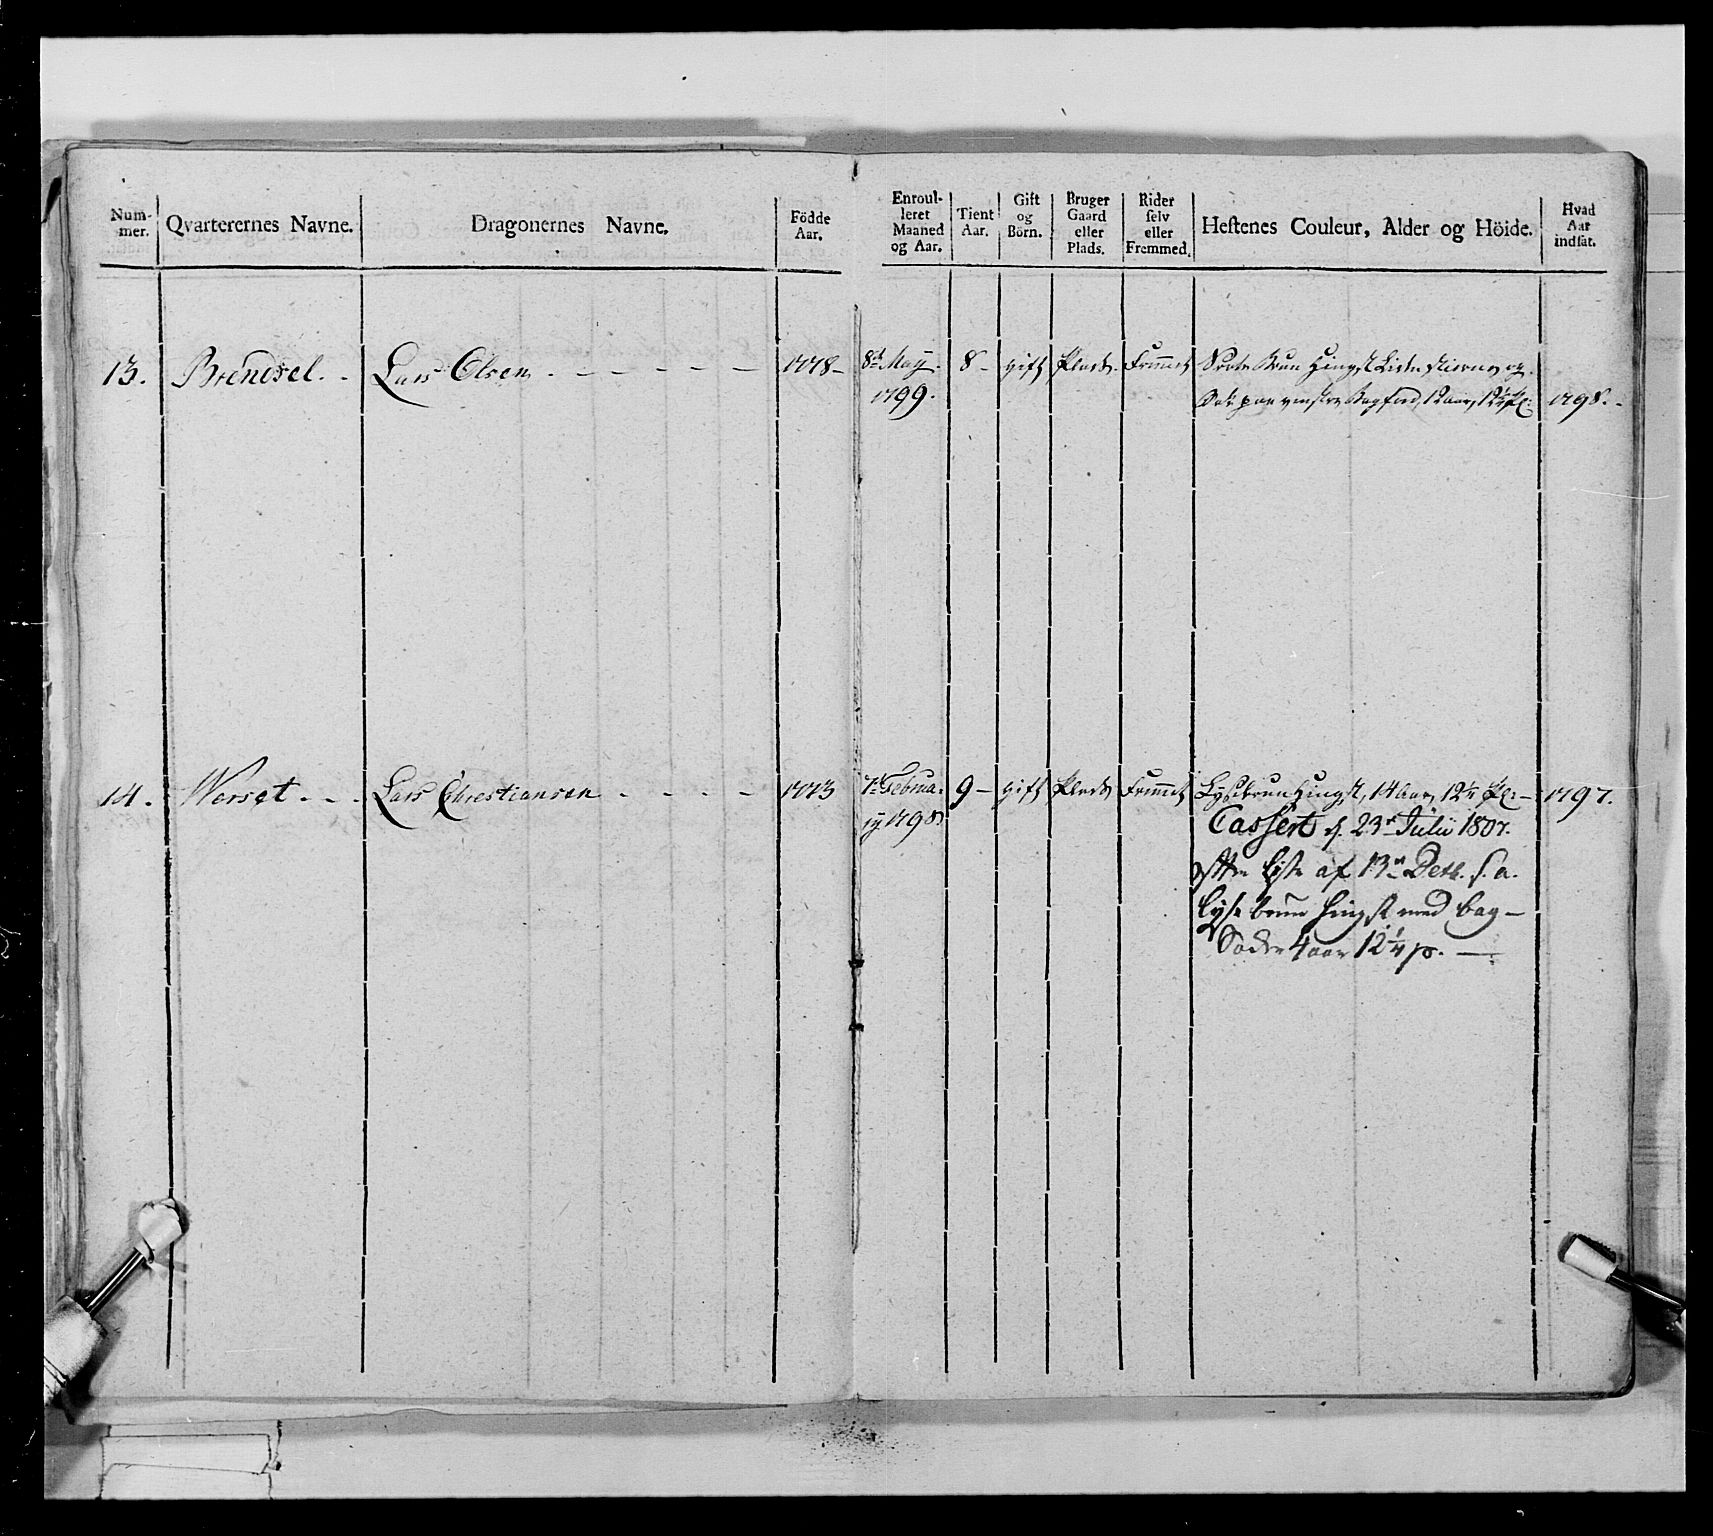 Num-
mer.
Qvarterernes Navne.
Dragonernes Navne.
Födde
Aar.
Enroul-
leret
Maaned
og Aar.
Tient
Aar.
Gift
og
Börn.
Bruger
Gaard
eller
Plads.
Rider
selv
eller
Fremmed.
Hestenes Couleur, Alder og Höide.
Hvad
Aar
indsat.
13. Brendsel. - Lars Olsen - - - - - - 1778 - 8de May 8 - gift Plads. Fremmet Sorte Brun Hingst Liden Stierne og
1799. Sok paa venstre Bagfod, 12 aar, 12 1798. -
14. Werset - - - Lars Chrestiansen - - - - 1773 7de Februa- 9 - gift Plads Fremmet Lysebrun Hingst, 14 aar, 12 1/4 - 1797.
ry 1798 Cassert d. 23de Julii 1807.
efter Liste af 13de Detb. s. a.
lyse brun Hingst med bag-
Sokker 4 aar 12 1/4 p. -